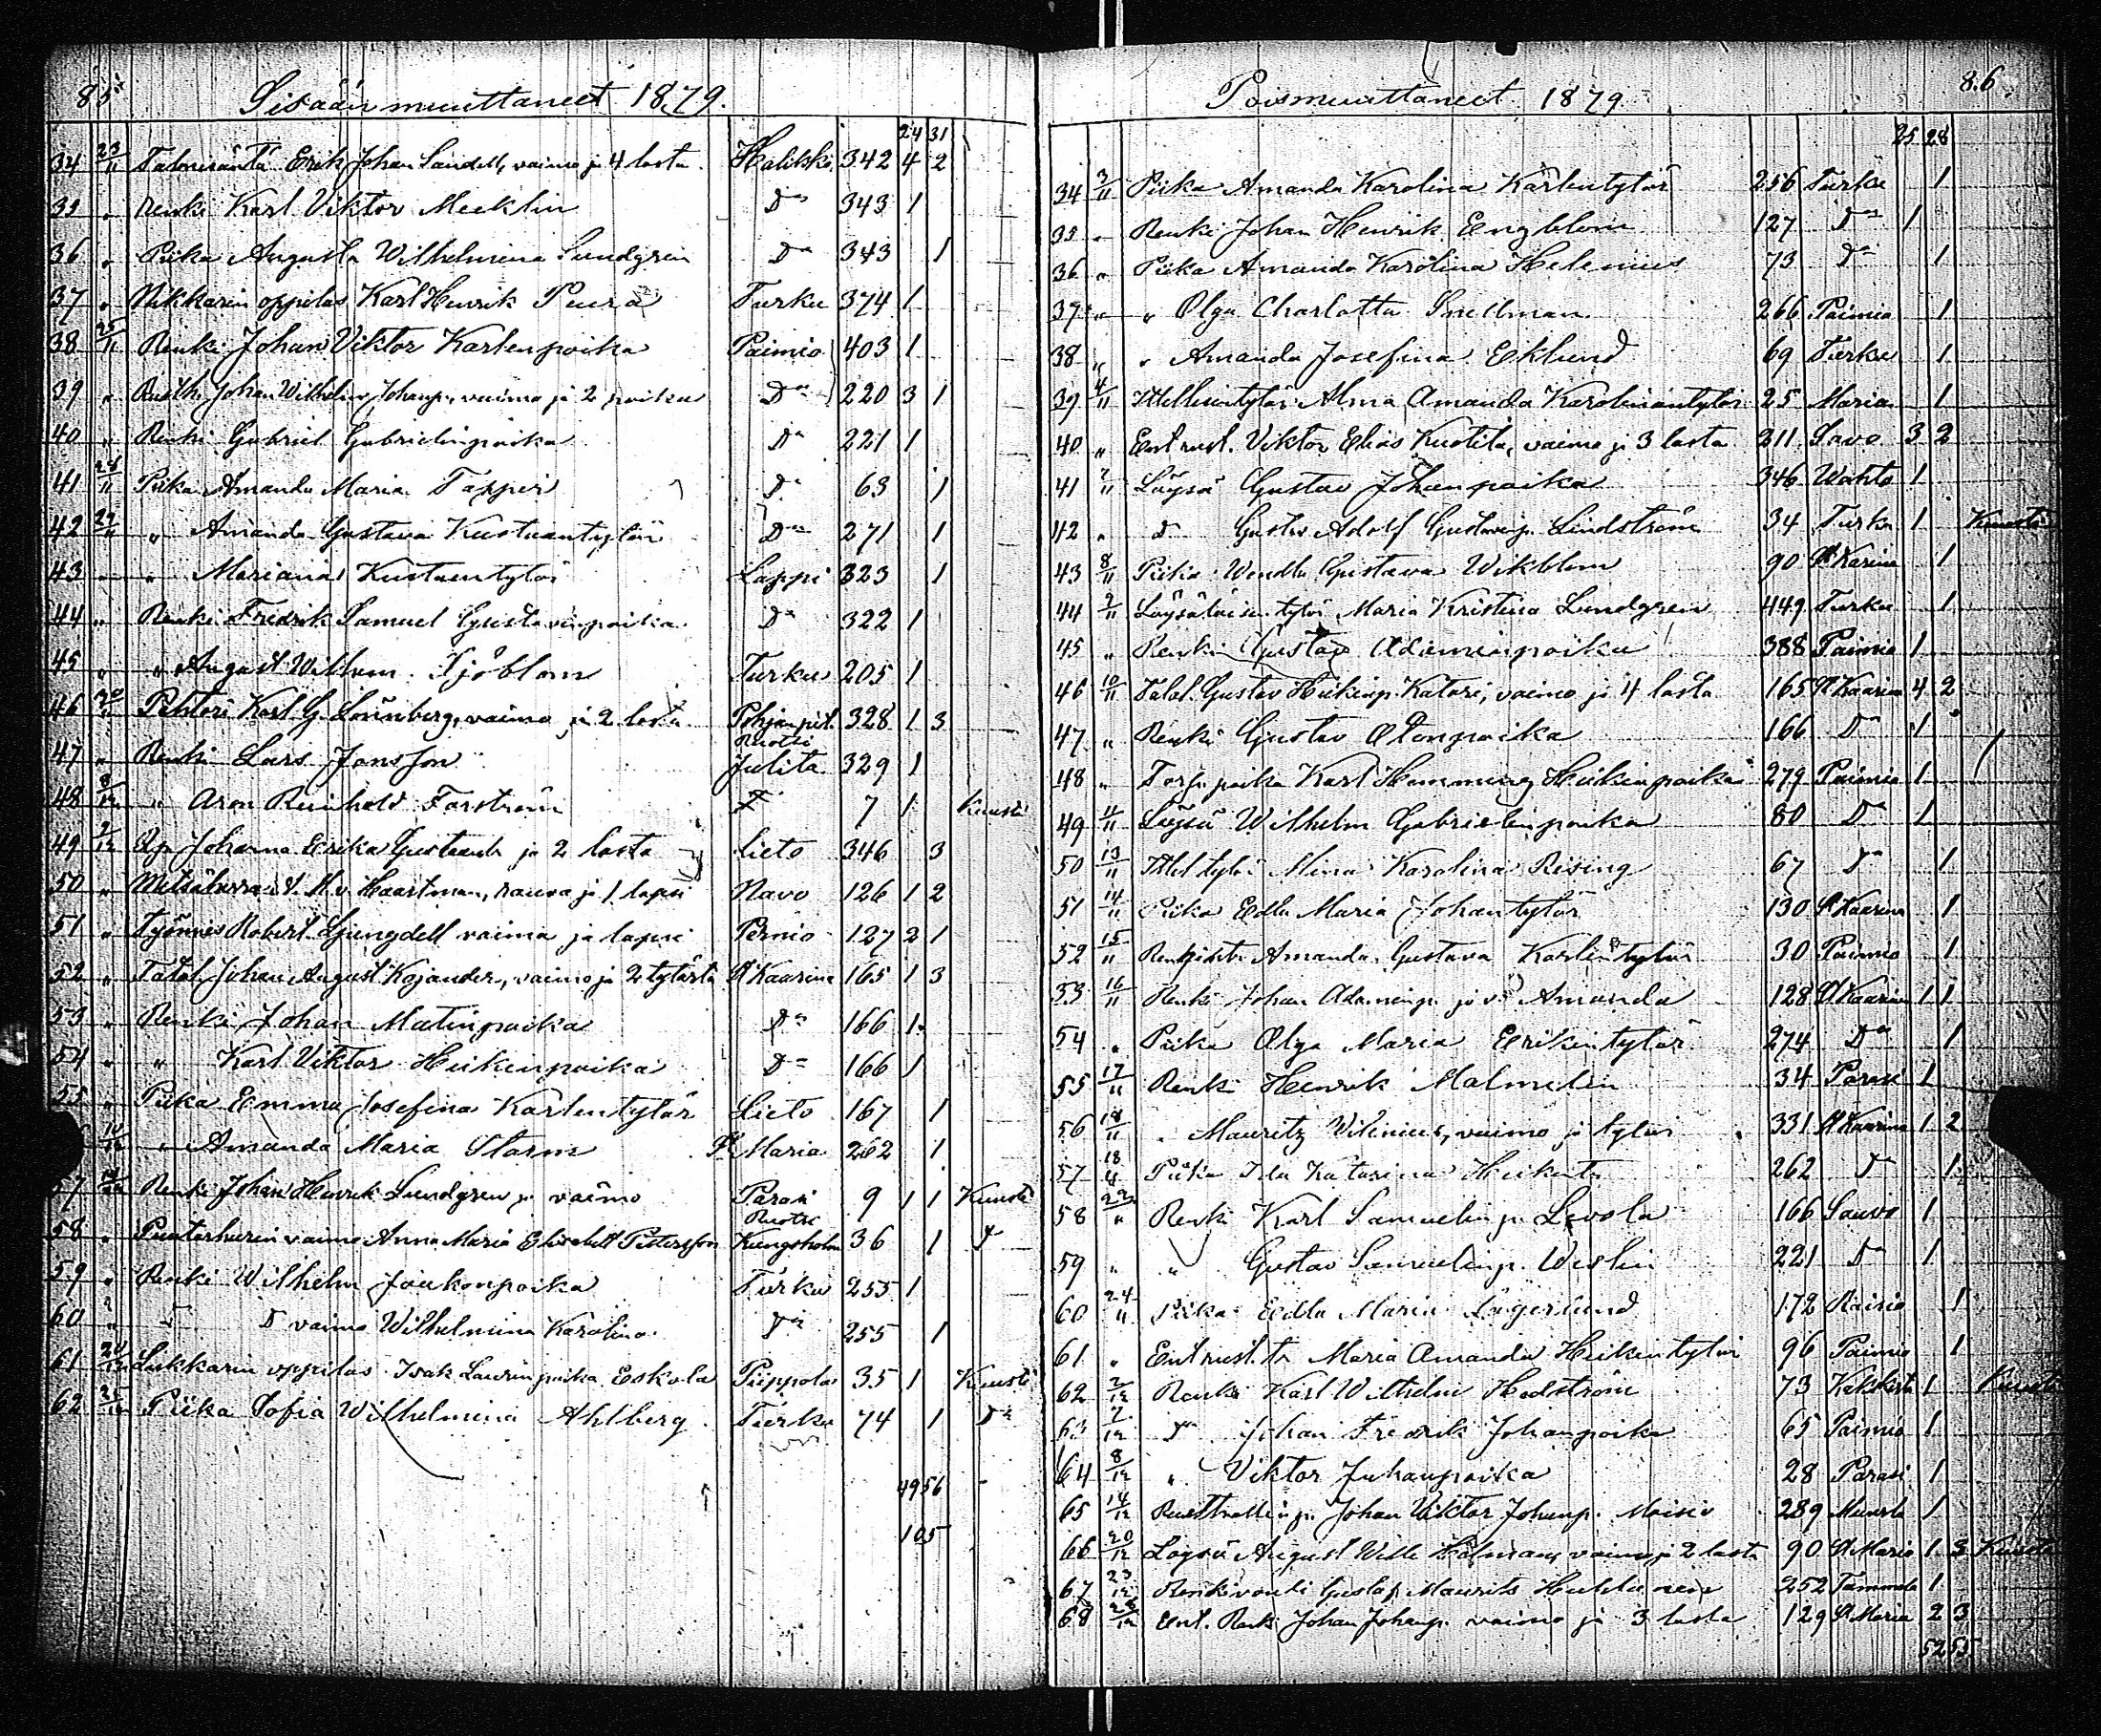 85
Sisäänmuuttaneet 1879.
24 31
34 23/11 Talonisäntä Erik Johan Sandell, vaimo ja 4 lasta Halikko 342 4 2
35 " Renki Karl Viktor Mecklin Do 343 1
36 " Piika Augusta Wilhelmina Lundgren Do 343 1
37 " Nikkarin oppilas Karl Henrik Peura Turku 374 1
38 25/11 Renki Johan Viktor Karlenpoika Paimio 403 1
39 " Johan Wilhelm Johanp., vaimo ja 2 poikaa Do 220 3 1
40 " Renki Gabriel Gabrielinpoika Do 221 1
41 /11 Piika Amanda Maria Tapper Do 63 1
42 29/11 " Amanda Gustava Kustaantytär Do 271 1
43 " " Mariana Kustaantytär Lappi 323 1
44 " Renki Fredrik Samuel Gustavinpoika Do 322 1
45 " " August Wilhem. Sjöblom Turku 205 1
46 30/11 Pehtori Karl G. Lönnberg, vaimo ja 2 lasta Pohjanpit. 328 1 3
47 " Renki Lars Jonsson Ruotsi Julita 329 1
48 8/12 " Aron Reinhold Forström 7 1 Kuusto
49 9/12 Johanna Erika Gustaant. ja 2 lasta Lieto 346 3
50 " v. Haartman, rouva ja 1 lapsi Navo 126 1 2
51 " Työmies Robert Ljungdell vaimo ja lapsi Perniö 127 2 1
52 " Johan August Kajander, vaimo ja 2 tytärtä St Kaarina 165 1 3
53 " Renki Johan Matinpoika Do 166 1
54 " " Karl Viktor Heikinpoika Do 166 1
55 " Piika Emma Josefina Karlentytär Lieto 167 1
/12 " Amanda Maria Storm St Maria 262 1
57 /12 Renki Johan Henrik Lundgren ja vaimo Parais 9 1 1 Kuusto
58 " Puutarhurin vaimo Anna Maria Elisabett Pettersson Ruotsi Kungsholm 36 1 Do
59 " Renki Wilhelm Jaakonpoika Turku 255 1
60 " Do vaimo Wilhelmina Karolina Do 255 1
61 20/12 Lukkarin oppilas Isak Laurinpoika Eskola Piippola 35 1 Kuusto
62 /12 Piika Sofia Wilhelmina Ahlberg Turku 74 1 Do
49 56
105
86
Poismuuttaneet 1879
25 28
34 3/11 Piika Amanda Karolina Karlentytär 256 Turku 1
35 " Renki Johan Henrik Engblom 127 Do 1
36 " Piika Amanda Karolina Helenius 73 Do 1
37 " " Olga Charlotta Snellman 266 Paimio 1
38 " " Amanda Josefina Eklund 69 Turku 1
39 4/11 Itsellisentytär Alma Amanda Karolinantytär 25 Maria 1
40 " Ent rust. Viktor Elias Kustila, vaimo ja 3 lasta 211 Savo 3 2
41 7/11 Löysä Gustav Johanpoika 346 Wahto 1
42 " D Gustav Adolf Gustavinp. Lindström 34 Turku 1 Kuusto
43 8/11 Piika Wendla Gustava Wikblom 90 St Karina 1
44 9/11 Löysäläisen tytär Maria Kristina Lundgren 449 Turku 1
45 " Renki Gustav Adaminpoika 388 Paimio 1
46 10/11 Talol. Gustav Heikinp. Katari, vaimo ja 4 lasta 165 St Kaarina 4 2
47 " Renki Gustav Otonpoika 166 Do 1
48 " Torp. poika Karl Hemming Heikinpoika 279 Paimio 1
49 11/11 Löysä Wilhelm Gabrielinpoika 80 Do 1
50 13/11 Itsel tytär Mina Karolina Rising 67 Do 1
51 14/11 Piika Edla Maria Johantytär 130 St Kaarina 1
52 15/11 Amanda Gustava Karlentytär 30 Paimio 1
53 16/11 Renki Johan Adaminp. ja v. Amanda 128 St Kaarina 1 1
54 " Piika Olga Maria Erikintytär 274 Do 1
55 17/11 Renki Henrik Malmelin 34 Parais 1
56 18/11 " Mauritz Wilenius, vaimo ja tytär 331 St Kaarina 1 2
57 18/11 Piika Ida Katarina Heikint. 262 Do 1
58 22/11 Renki Karl Samuelinp. Levola 166 Sauvo 1
59 " " Gustav Samuelinp. Weslin 221 Do 1
60 24/11 Piika Edla Maria Lagerlund 172 Raisio 1
61 " Ent rust. tr Maria Amanda Heikintytär 96 Paimio 1
62 2/12 Renki Karl Wilhelm Hedström 73 Kakskerta 1 Kuusto
63 7/12 Do Johan Fredrik Johanpoika 65 Paimio 1
64 8/12 " Viktor Juhanpoika 28 Parais 1
65 14/12 Rusthollin p. Johan Viktor Johanp. Moisio 289 1
66 20/12 Löysä August Wille Holman, vaimo ja 2 lasta 90 St Maria 1 3 Kuusto
67 23/12 Renkivouti Gustaf Maurits 252 Tammela 1
68 28/12 Ent. Renki Johan Johanp. vaimo ja 3 lasta 129 St Maria 2 3
52 55